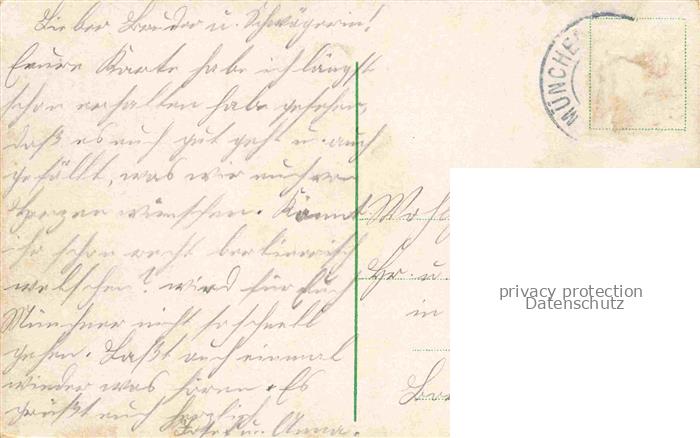 Lieber Bruder u. Schwägerin!
Eeure Karte habe ich längst
schon erhalten habe gesehen,
daß es euch gut geht u. auch
gefällt, was wir euch von
Herzen wünschen. Könnt
ihr schon recht berlinerisch
welschen? wird für Euch
Münchner nicht so schnell
gehen. Laßt auch einmal
wieder was hören. Es
grüßt euch herzlich
Josef u. Anna.
MÜNCHE
Hr. u.
in
privacy protection
Datenschutz